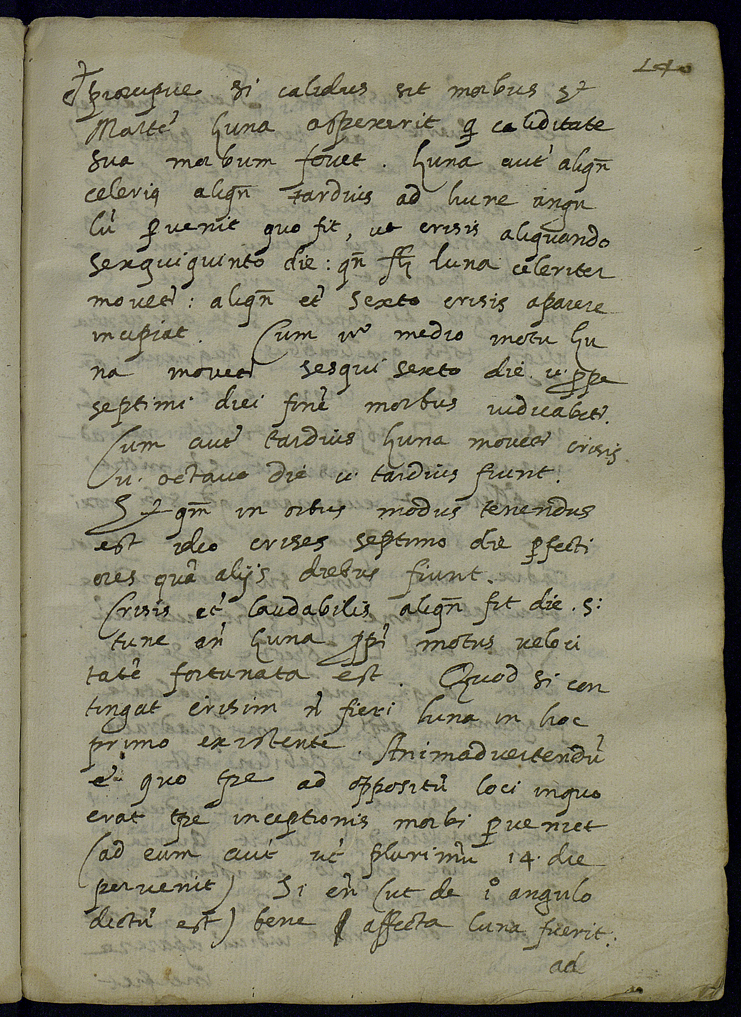 140
praecipue si calidus sit morbus et
Marte' Luna aspexerit q caliditate
sua morbum fovet. Luna aut' aliqn̄
celeriq aliqn̄ tardius ad hunc angu
lū pervenit quo fit, ut crisis aliquando
sexquiquinto die: qn̄ luna celeriter
movet': aliqn̄ et' sexto crisis aparere
incipiat. Cum v° medio motu Lu
na movet' sesqui sexto die v. prope
septimi diei fine' morbus iudicabit'.
Cum aut' tardius Luna movet' crisis
v. octavo die v. tardius fiunt.
Et qm̄ in ortus modus tenendus
est ideo crises septimo die perfecti
ores quā alijs diebus fiunt.
Crisis et' laudabilis aliqn̄ fit die .5:
tunc en' Luna ppr' motus veloci
tate' fortunata est. Quod si con
tingat crisim n̄ fieri luna in hoc
primo existente. Animadvertendū
e' quo tpe ad oppositū loci in quo
erat tpe inceptionis morbi perveniet
(ad eum aut' ut plurimū 14. die
pervenit) Si en' (ut de 1° angulo
dictū est) bene affecta luna fuerit:
ad